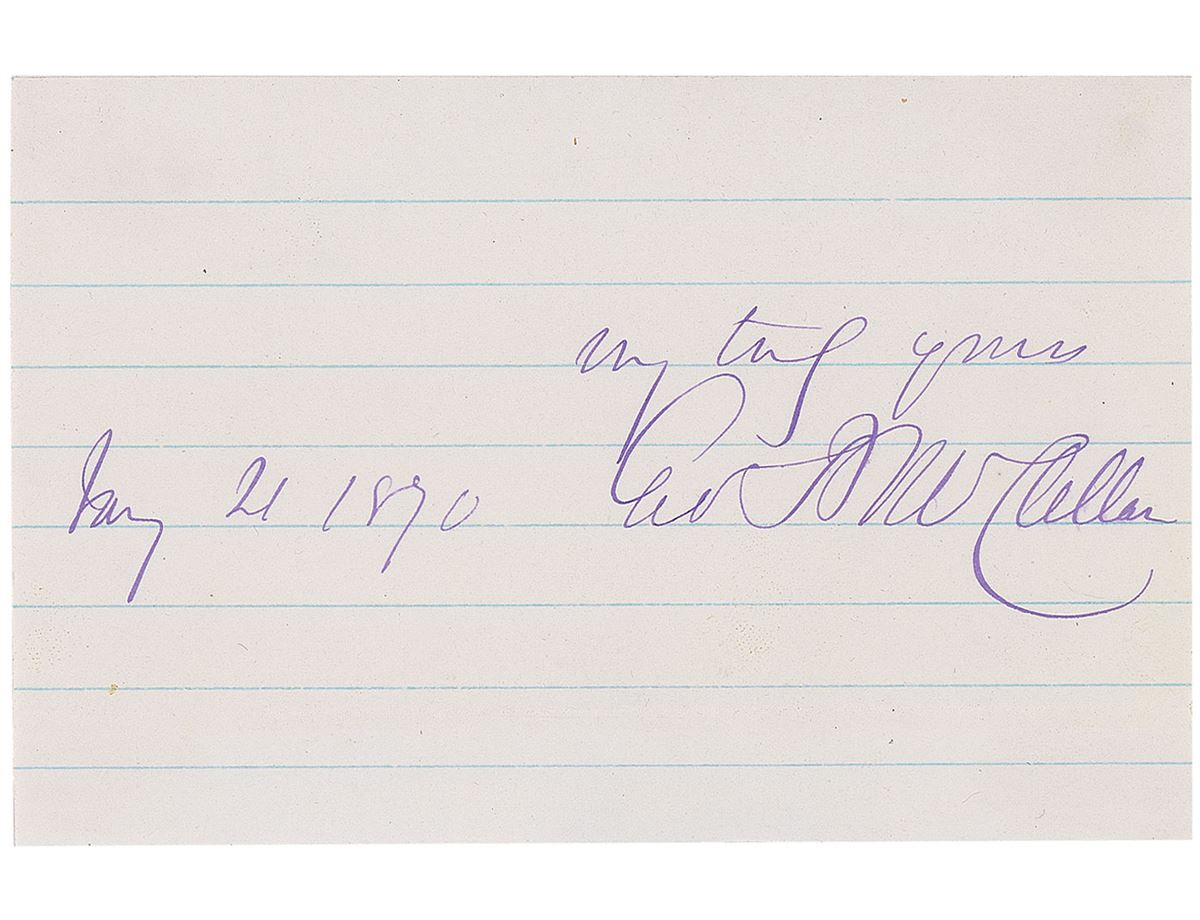 very truly yours
Jany 21 1870 Geo B McClellan